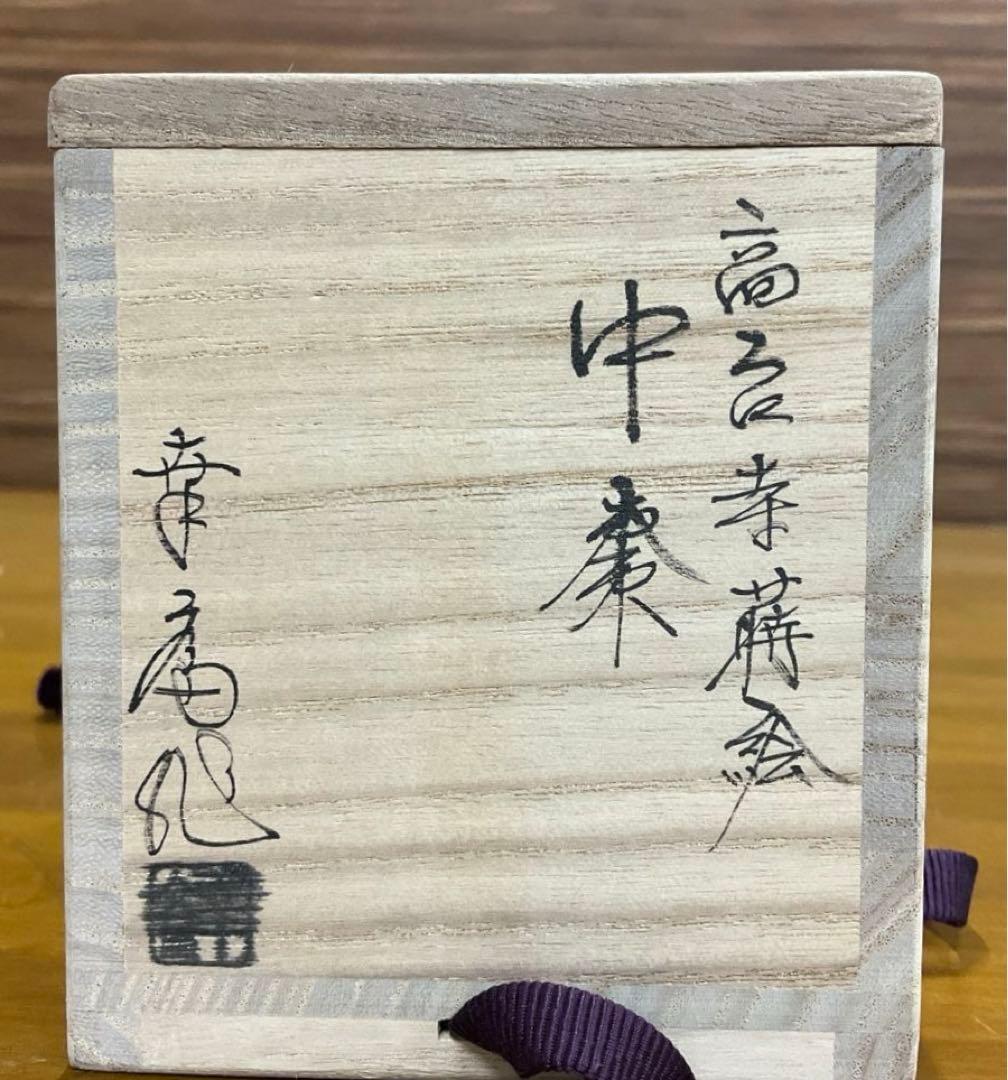 高台寺蒔絵
中棗
幸斎